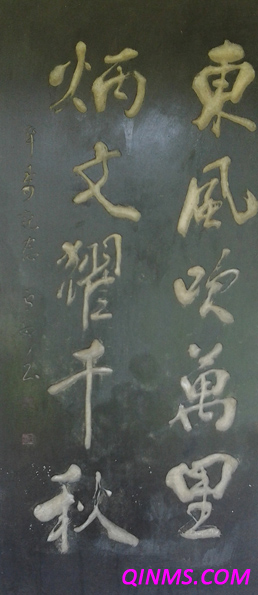 東風吹萬里
炳文耀千秋
QINMS.COM